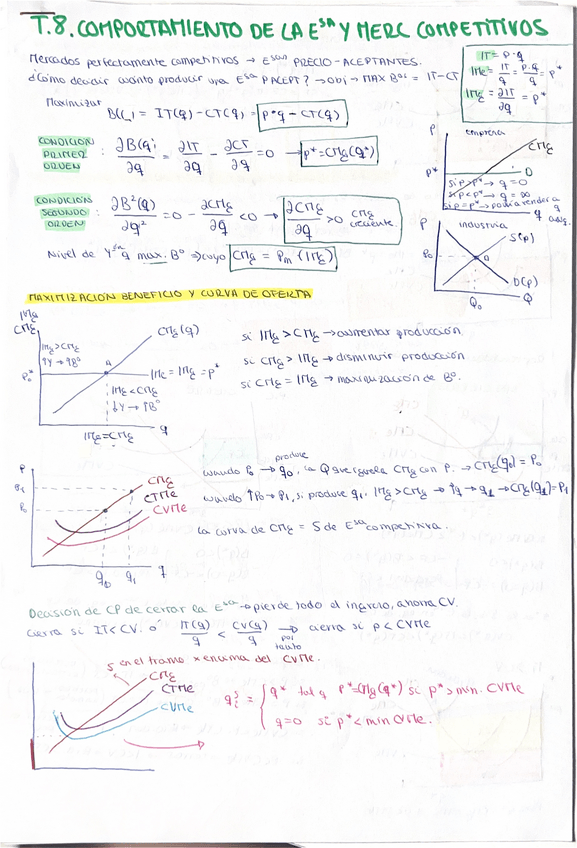 T.8. COMPORTAMIENTO DE LA Eˢᴬ Y MERC COMPETITIVOS
Mercados perfectamente competitivos → Eˢᵃˢ PRECIO-ACEPTANTES.
¿Cómo decidir cuánto producir una Eˢᵃ P ACEPT? → obj → MAX Bº = IT-CT
IT = p·q
IMe = IT/q = p·q/q = p*
IMg = ∂IT/∂q = p*
Maximizar
B(q) = IT(q) - CT(q) = p*q - CT(q)
CONDICIÓN PRIMER ORDEN : ∂B(q)/∂q = ∂IT/∂q - ∂CT/∂q = 0 → p* = CMg(q*)
CONDICIÓN SEGUNDO ORDEN : ∂B²(q)/∂q² = 0 - ∂CMg/∂q < 0 → ∂CMg/∂q > 0 CMg creciente.
Nivel de Yˢᵃ q max. Bº → cuyo CMg = Pm (IMg)
P
empresa
CMg
P*
D
si p > p* → q = 0
si p < p* → q = ∞
si p = p* → podría vender a q
q
P
industria
S(p)
P₀
D(p)
Q₀
Q
MAXIMIZACIÓN BENEFICIO Y CURVA DE OFERTA
IMg
CMg
CMg(q)
IMg > CMg
↑Y → ↑Bº
A
P₀*
IMg = IMe = p*
IMg < CMg
↓Y → ↑Bº
IMg = CMg
q
si IMg > CMg → aumentar producción.
si CMg > IMg → disminuir producción
si CMg = IMg → maximización de Bº.
P
P₁
P₀
CMg
CTMe
CVMe
q₀
q₁
q
cuando P₀ → produce q₀, la Q que iguala CMg con P. → CMg(q₀) = P₀
cuando ↑P₀ → P₁, si produce q₁. IMg > CMg → ↑q → q₁ → CMg(q₁) = P₁
la curva de CMg = S de Eˢᵃ competitiva.
Decisión de CP de cerrar la Eˢᵃ → pierde todo el ingreso, ahorra CV.
cierra si IT < CV. o IT(q)/q < CV(q)/q → por tanto cierra si p < CVMe
S en el tramo x encima del CVMe.
CMg
CTMe
CVMe
q* tal q P* = CMg(q*) si p* > min. CVMe
q = 0 si p* < min CVMe.